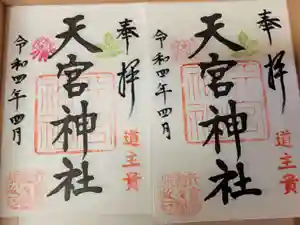 奉拝
天宮神社
道主貴
令和四年四月
奉拝
天宮神社
道主貴
令和四年四月